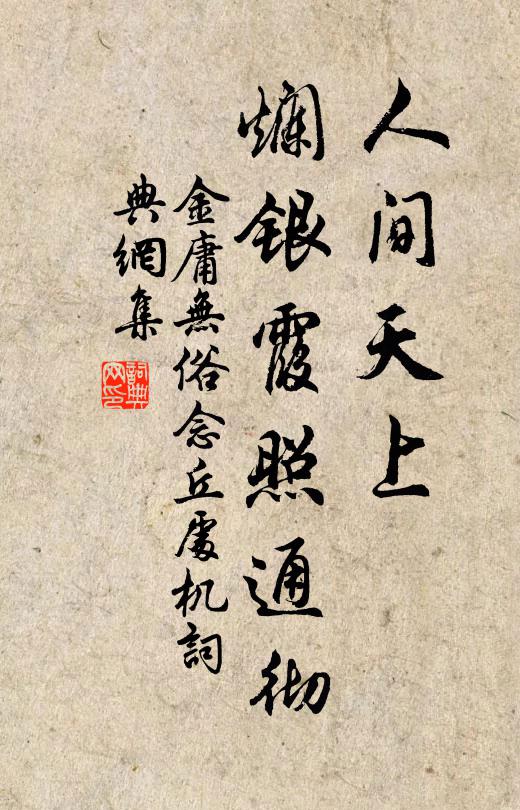 人间天上
爛银霞照通彻
金庸無俗念丘處机詞
典網集
詞典网印